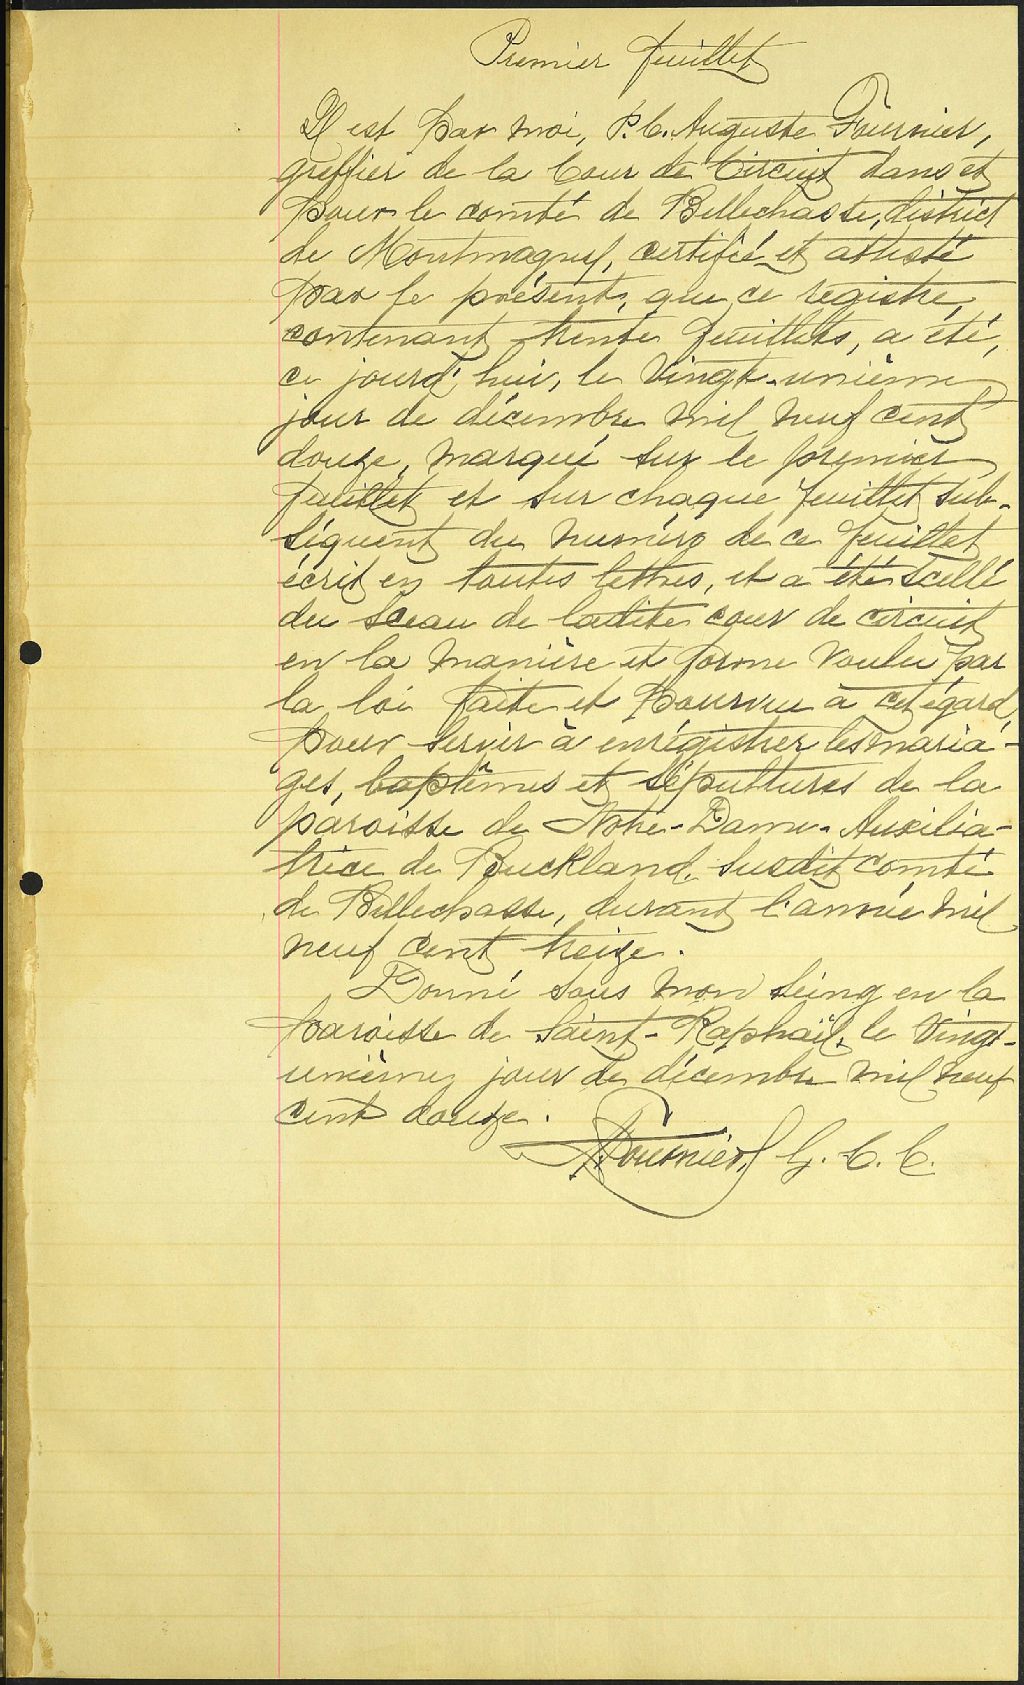 Premier feuillet
Il est par moi, P. C. Auguste Fournier,
greffier de la Cour de Circuit dans et
pour le comté de Bellechasse, district
de Montmagny, certifié et attesté
par le présent, que ce registre,
contenant trente feuillets, a été,
ce jourd'hui, le vingt-unième
jour de décembre mil neuf cent
douze, marqué sur le premier
feuillet et sur chaque feuillet sub-
séquent du numéro de ce feuillet
écrit en toutes lettres, et a été scellé
du sceau de ladite cour de circuit
en la manière et forme voulu par
la loi faite et pourvu à cet égard,
pour servir à enrégistrer les maria-
ges, baptêmes et sépultures de la
paroisse de Notre-Dame-Auxilia-
trice de Buckland, susdit comté
de Bellechasse, durant l'année mil
neuf cent treize.
Donné sous mon seing en la
paroisse de Saint-Raphaël, le vingt-
unième jour de décembre mil neuf
cent douze.
A. Fournier, G. C. C.